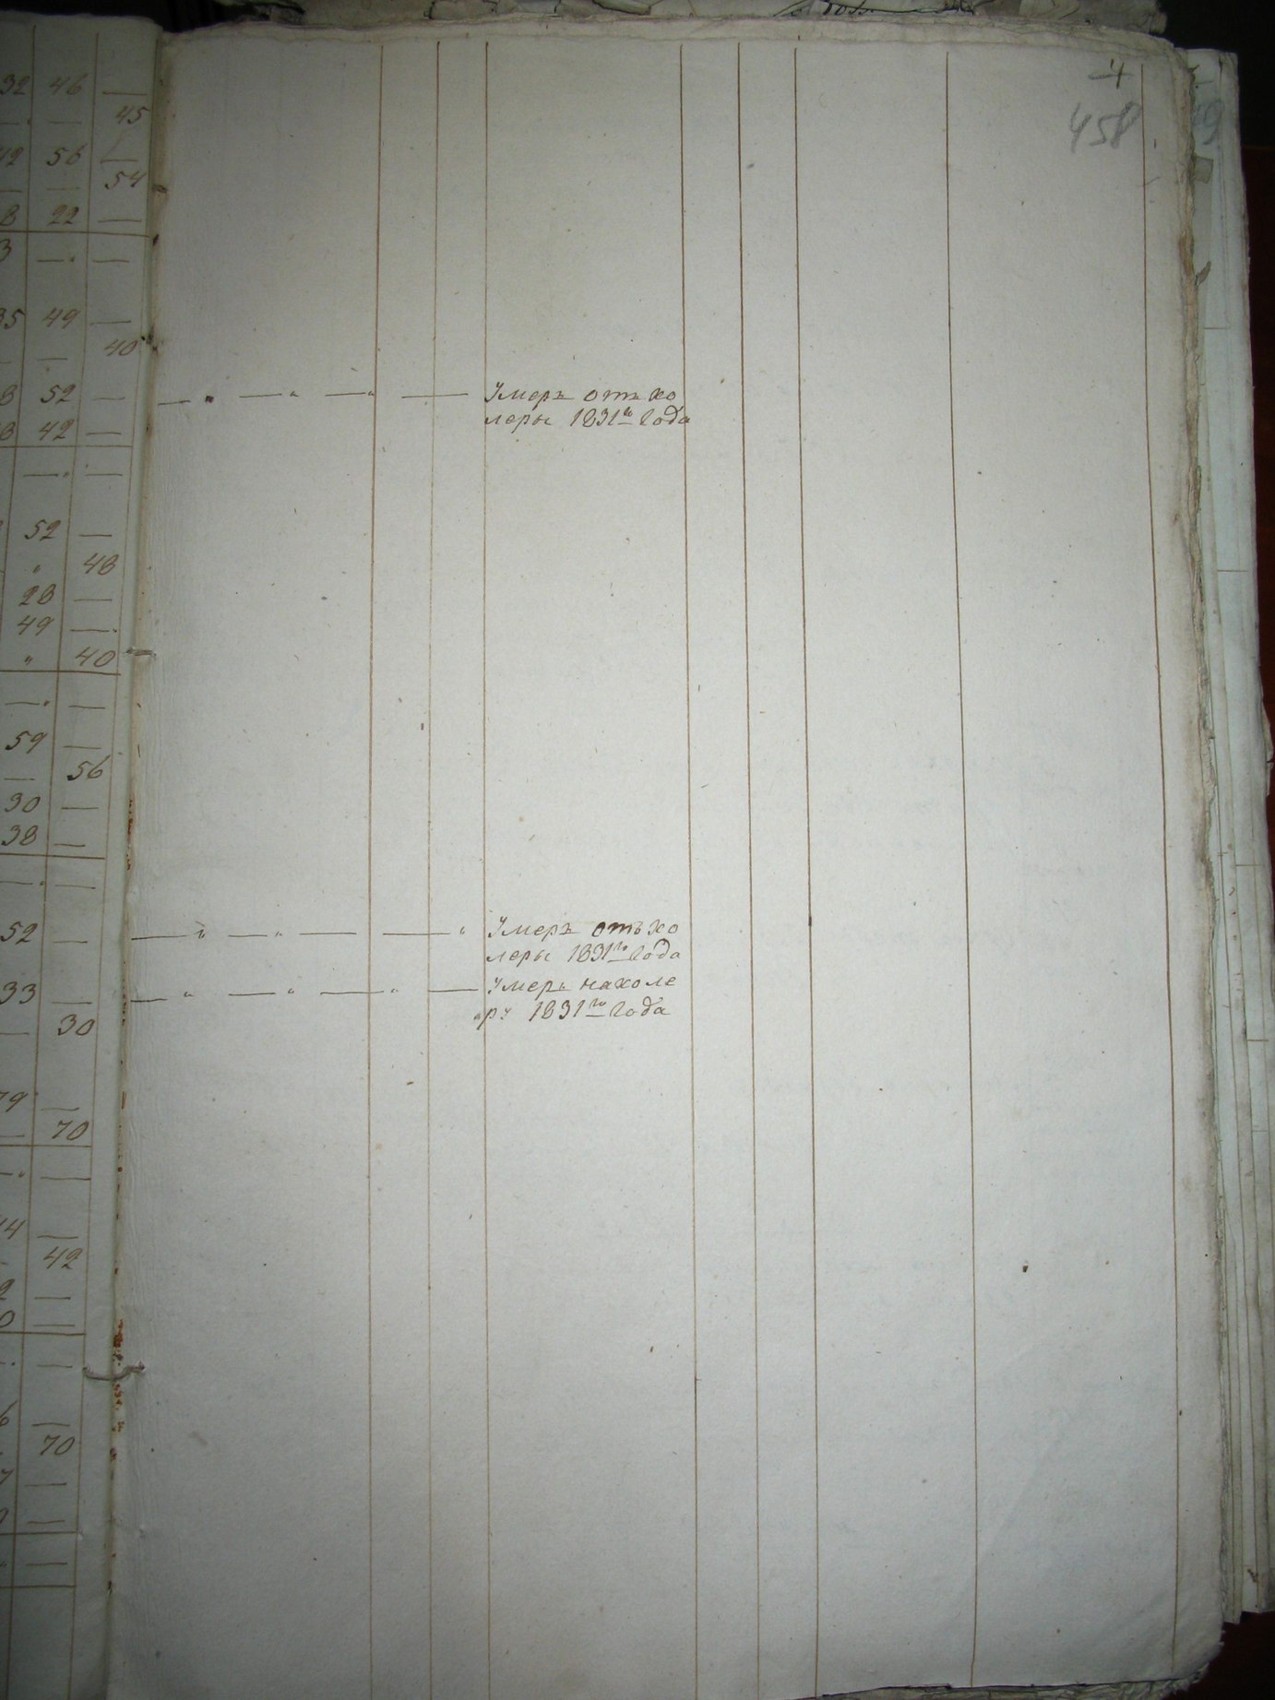 4
458
32 46 —
— — 45
42 56 —
— — 54
8 22 —
3 — —
35 49 —
— — 40
8 52 —
8 42 —
— —
52 —
" 48
28 —
49 —
" 40
— —
59 —
— 56
30 —
38 —
— —
52 —
33 —
— 30
79 —
— 70
— —
44 —
42
—
—
—
—
70
—
—
—
— " — " — " — Умеръ отъ хо
леры 1831го года
— " — " — — " Умеръ отъ хо
леры 1831го года
— " — " — " — Умеръ нахоле
ру 1831го года